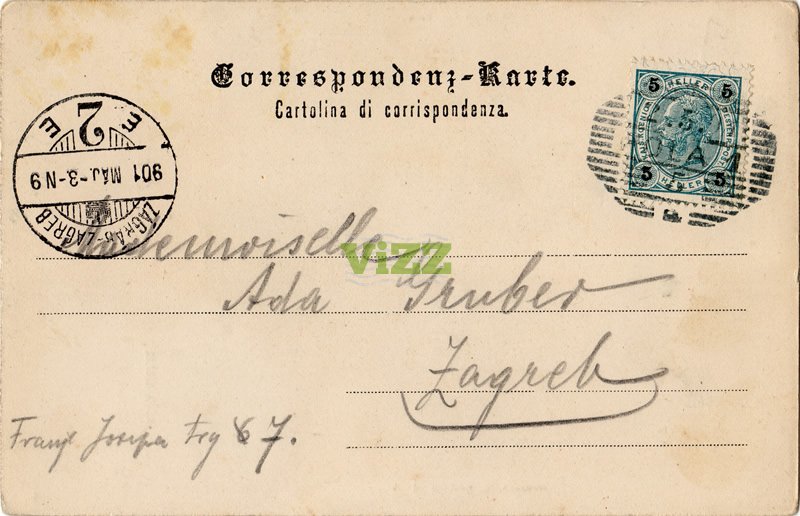 Correspondenz-Karte.
Cartolina di corrispondenza.
5 HELLER 5
5 HELLER 5
2
E E
901 MÁJ.-3.-N9
ZÁGRÁB-ZAGREB
ViZZ
Mademoiselle
Ada Gruber
Zagreb
Franje Josipa trg 6 7.